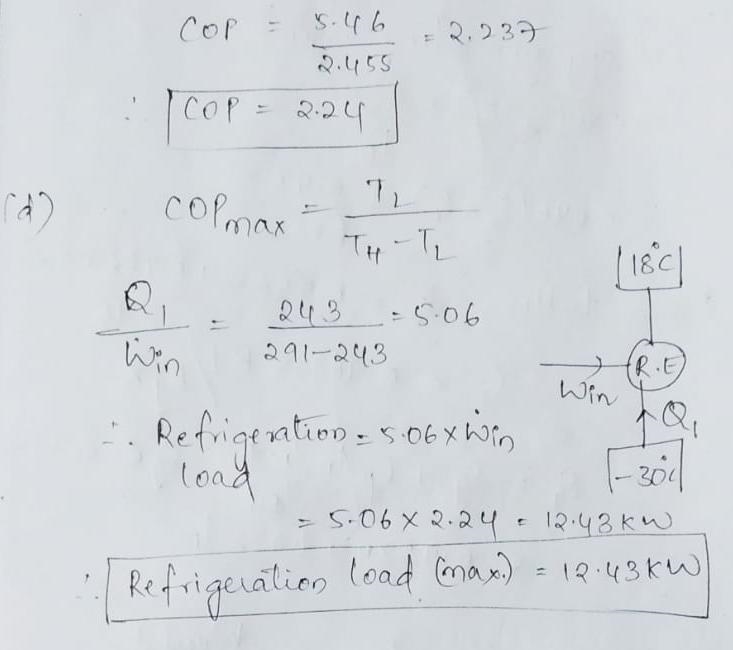 COP = 5.46 / 2.455 = 2.237
∴ COP = 2.24
(d) COPmax = TL / TH - TL
Q̇1 / Ẇin = 243 / 291-243 = 5.06
18°C
R.E
Win
Q1
-30°C
∴ Refrigeration = 5.06 x Ẇin
load
= 5.06 x 2.24 = 12.43 kW
∴ Refrigeration load (max.) = 12.43 kW